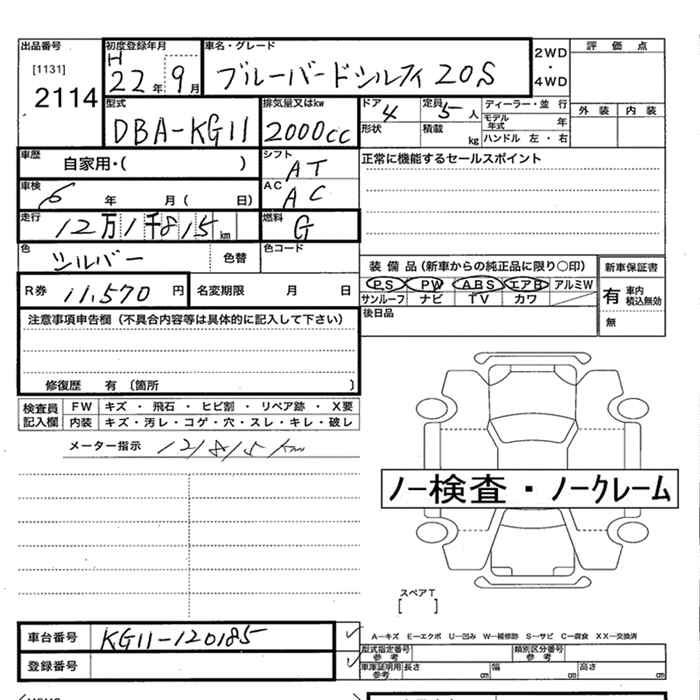 出品番号 初度登録年月 車名・グレード 2WD ・ 4WD 評価点
[1131] H 22年 9月 ブルーバードシルフィ 20S
2114 外装 内装
型式 排気量又はkw ドア 定員 ディーラー・並行
DBA-KG11 2000cc 4 5人 モデル年式 年
形状 積載 kg ハンドル 左・右
車歴 自家用・( ) シフト AT 正常に機能するセールスポイント
車検 6年 月( 日) AC AC
走行 12万1千815km 燃料 G
色 シルバー 色替 色コード
装備品(新車からの純正品に限り○印) 新車保証書
R券 11,570円 名変期限 月 日 PS PW ABS エアB アルミW 有 車内積込無効
サンルーフ ナビ TV カワ
注意事項申告欄(不具合内容等は具体的に記入して下さい) 後日品 無
修復歴 有 〔箇所 〕
検査員記入欄 FW キズ・飛石・ヒビ割・リペア跡・X要
内装 キズ・汚レ・コゲ・穴・スレ・キレ・破レ
メーター指示 121815km
ノー検査・ノークレーム
スペアT
[ ]
車台番号 KG11-120185
A-キズ E-エクボ U-凹み W-補修跡 S-サビ C-腐食 XX-交換済
登録番号 型式指定番号 参考 類別区分番号 参考
車庫証明用 参考 長さ cm 幅 cm 高さ cm